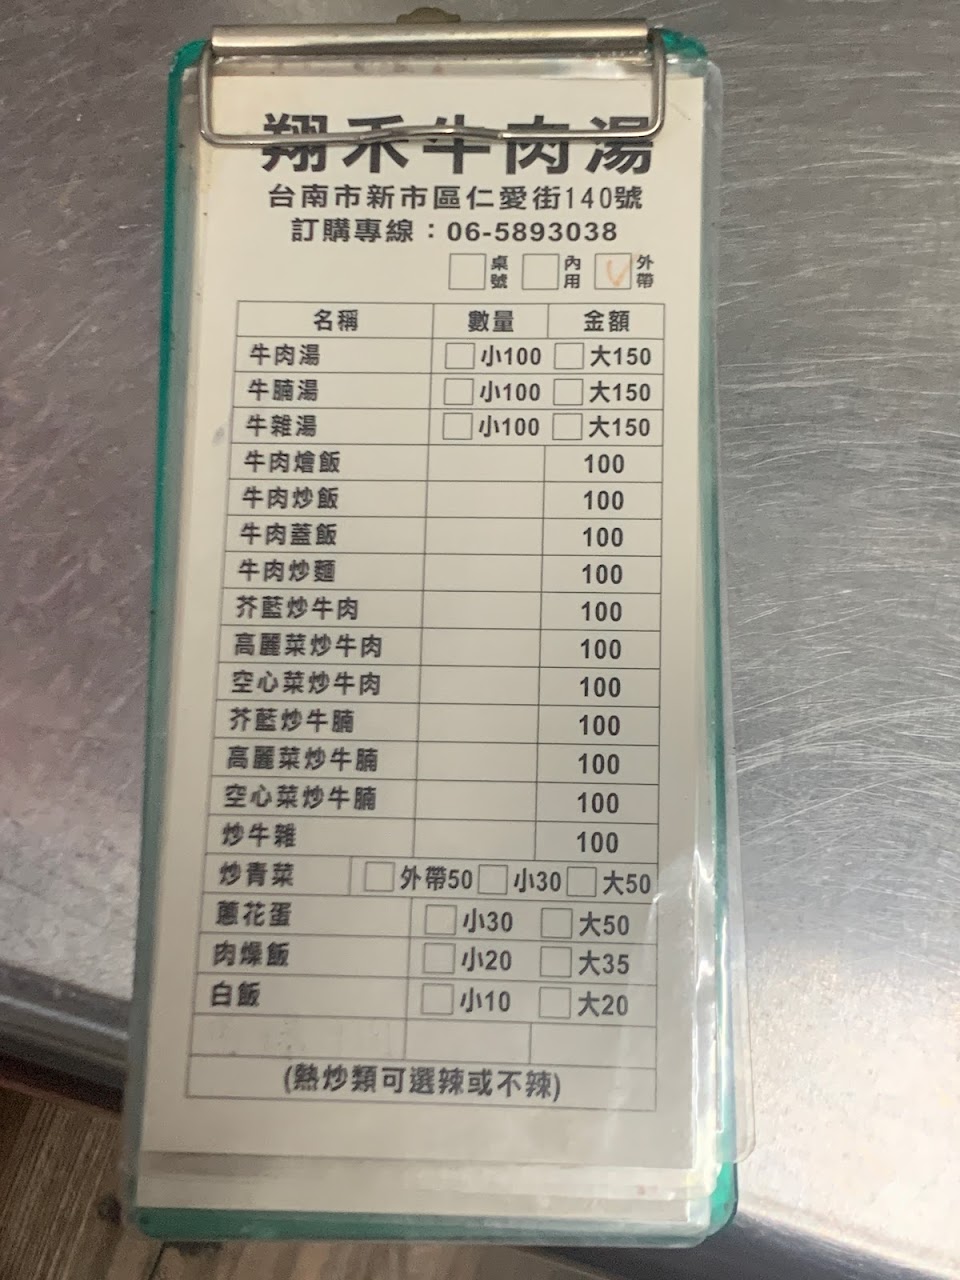 翔禾牛肉湯
台南市新市區仁愛街140號
訂購專線：06-5893038
桌號 內用 外帶
名稱 數量 金額
牛肉湯 小100 大150
牛腩湯 小100 大150
牛雜湯 小100 大150
牛肉燴飯 100
牛肉炒飯 100
牛肉蓋飯 100
牛肉炒麵 100
芥藍炒牛肉 100
高麗菜炒牛肉 100
空心菜炒牛肉 100
芥藍炒牛腩 100
高麗菜炒牛腩 100
空心菜炒牛腩 100
炒牛雜 100
炒青菜 外帶50 小30 大50
蔥花蛋 小30 大50
肉燥飯 小20 大35
白飯 小10 大20
(熱炒類可選辣或不辣)